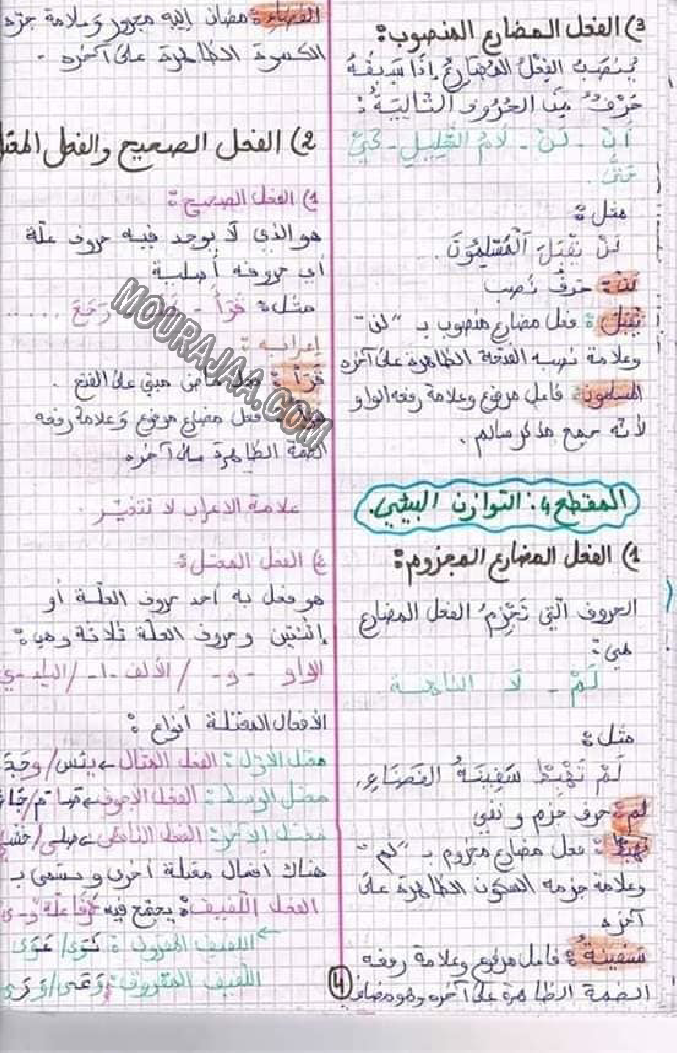 3) الفعل المضارع المنصوب:
يُنصَبُ الفِعْلُ المُضَارِعُ إذَا سَبِقَهُ
حَرْفٌ مِنَ الحُرُوفِ التَّالِيَةُ:
أَنْ - لَنْ - لَامُ التَّعْلِيلِ - كَيْ
حَتَّى .
مثل:
لَنْ نَقْبَلَ المُسْلِمُونَ .
لَنْ: حرفُ نصب
نقبل: فعل مضارع منصوب بـ "لن"
وعلامة نصبه الفتحة الظاهرة على آخره
المسلمون: فاعل مرفوع وعلامة رفعه الواو
لأنه جمع مذكر سالم .
المقطع 4: التوازن البيئي.
1) الفعل المضارع المجزوم:
الحروف التي تَجْزِمُ الفعل المضارع
هي:
لَمْ - لَا الناهية
مثل:
لَمْ تَهْبِطْ سَفِينَةُ الفَضَاءِ.
لم: حرف جزم و نفي
تهبط: فعل مضارع مجزوم بـ "لم"
وعلامة جزمه السكون الظاهرة على
آخره
سَفينةُ: فاعل مرفوع وعلامة رفعه
الضمة الظاهرة على آخره وهو مضاف
الفضاءِ: مضاف إليه مجرور وعلامة جره
الكسرة الظاهرة على آخره .
2) الفعل الصحيح والفعل المعتل
1) الفعل الصحيح:
هو الذي لَا يوجد فيه حروف علّة
أي حروفه أصلية
مثل: قَرَأَ - رَجَعَ ......
إعرابه:
قَرَأَ: فعل ماض مبني على الفتح .
فعل مضارع مرفوع وَعلامة رفعه
الضمة الظاهرة على آخره
علامة الاعراب لا تتغير .
2) الفعل المعتل:
هو فعل به أحد حروف العلّة أو
إثنتين و حروف العلّة ثلاثة وهي:
الواو - و - / الألف - ا - / الياء - ي
الأفعال المعتلة أنواع:
معتل الأول: الفعل المثال ← يئس / وجد
معتل الوسط: الفعل الأجوف ← صام /
معتل الآخر: الفعل الناقص ←
هناك افعال معتلة أخرى و يسمى بـ
الفعل اللّفيف: يجتمع فيه حَرْفَا علّة و-ي
← اللفيف المقرون: نَوَى / عَوَى
اللفيف المفروق: وَعَى /
4
MOURAJAA.COM